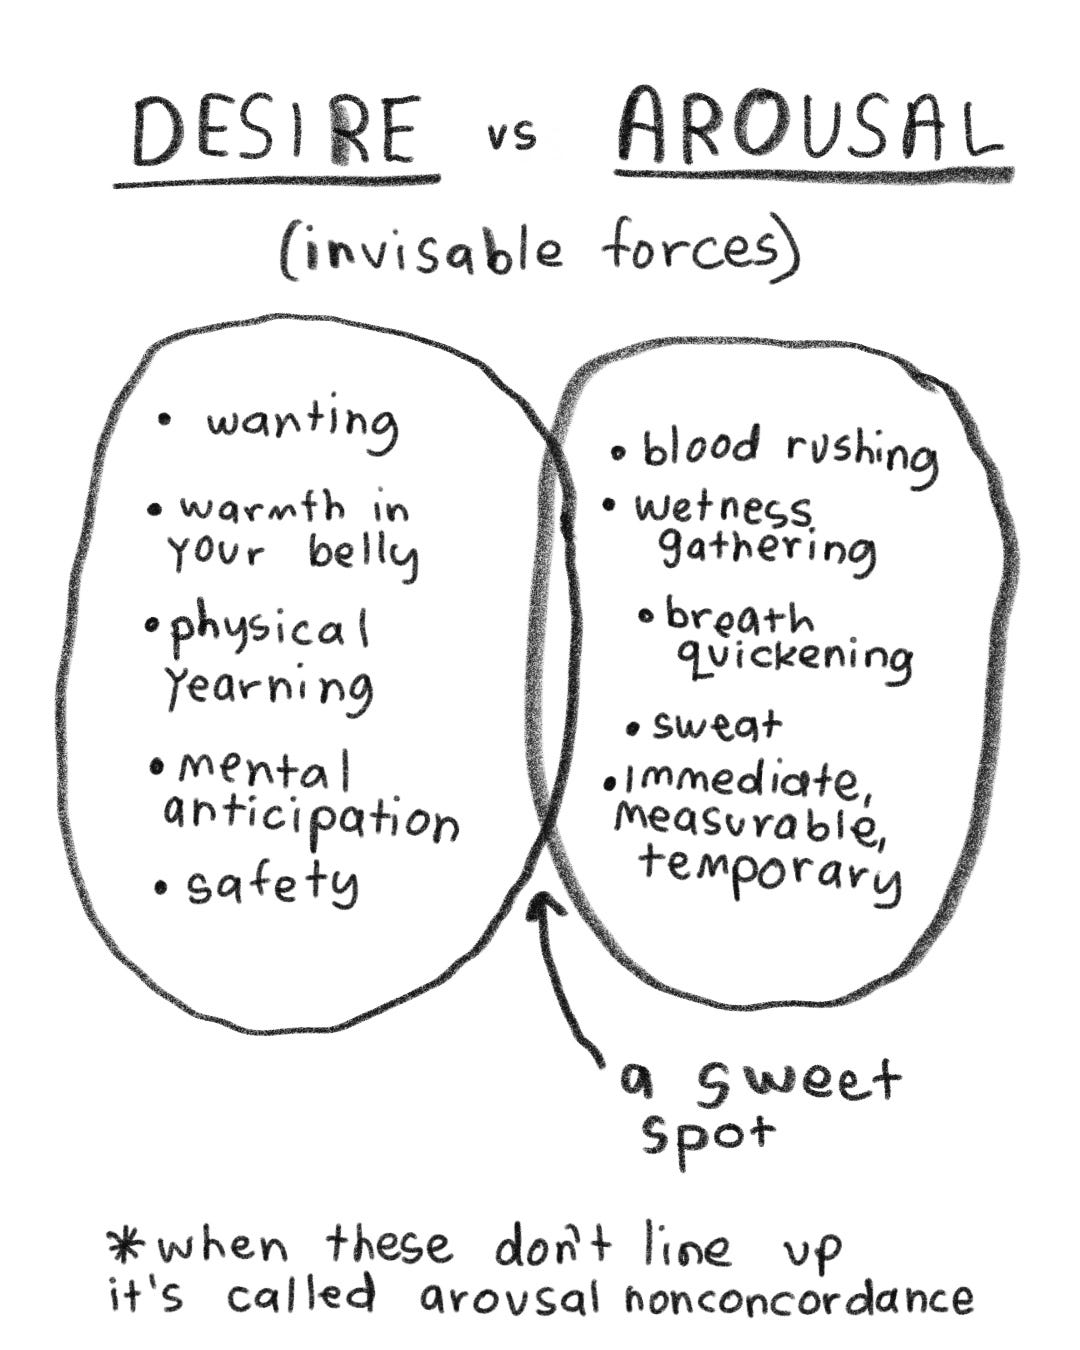 DESIRE vs AROUSAL
(invisable forces)
• wanting
• warmth in
your belly
• physical
yearning
• mental
anticipation
• safety
• blood rushing
• wetness
gathering
• breath
quickening
• sweat
• immediate,
measurable,
temporary
a sweet
spot
*when these don't line up
it's called arousal nonconcordance